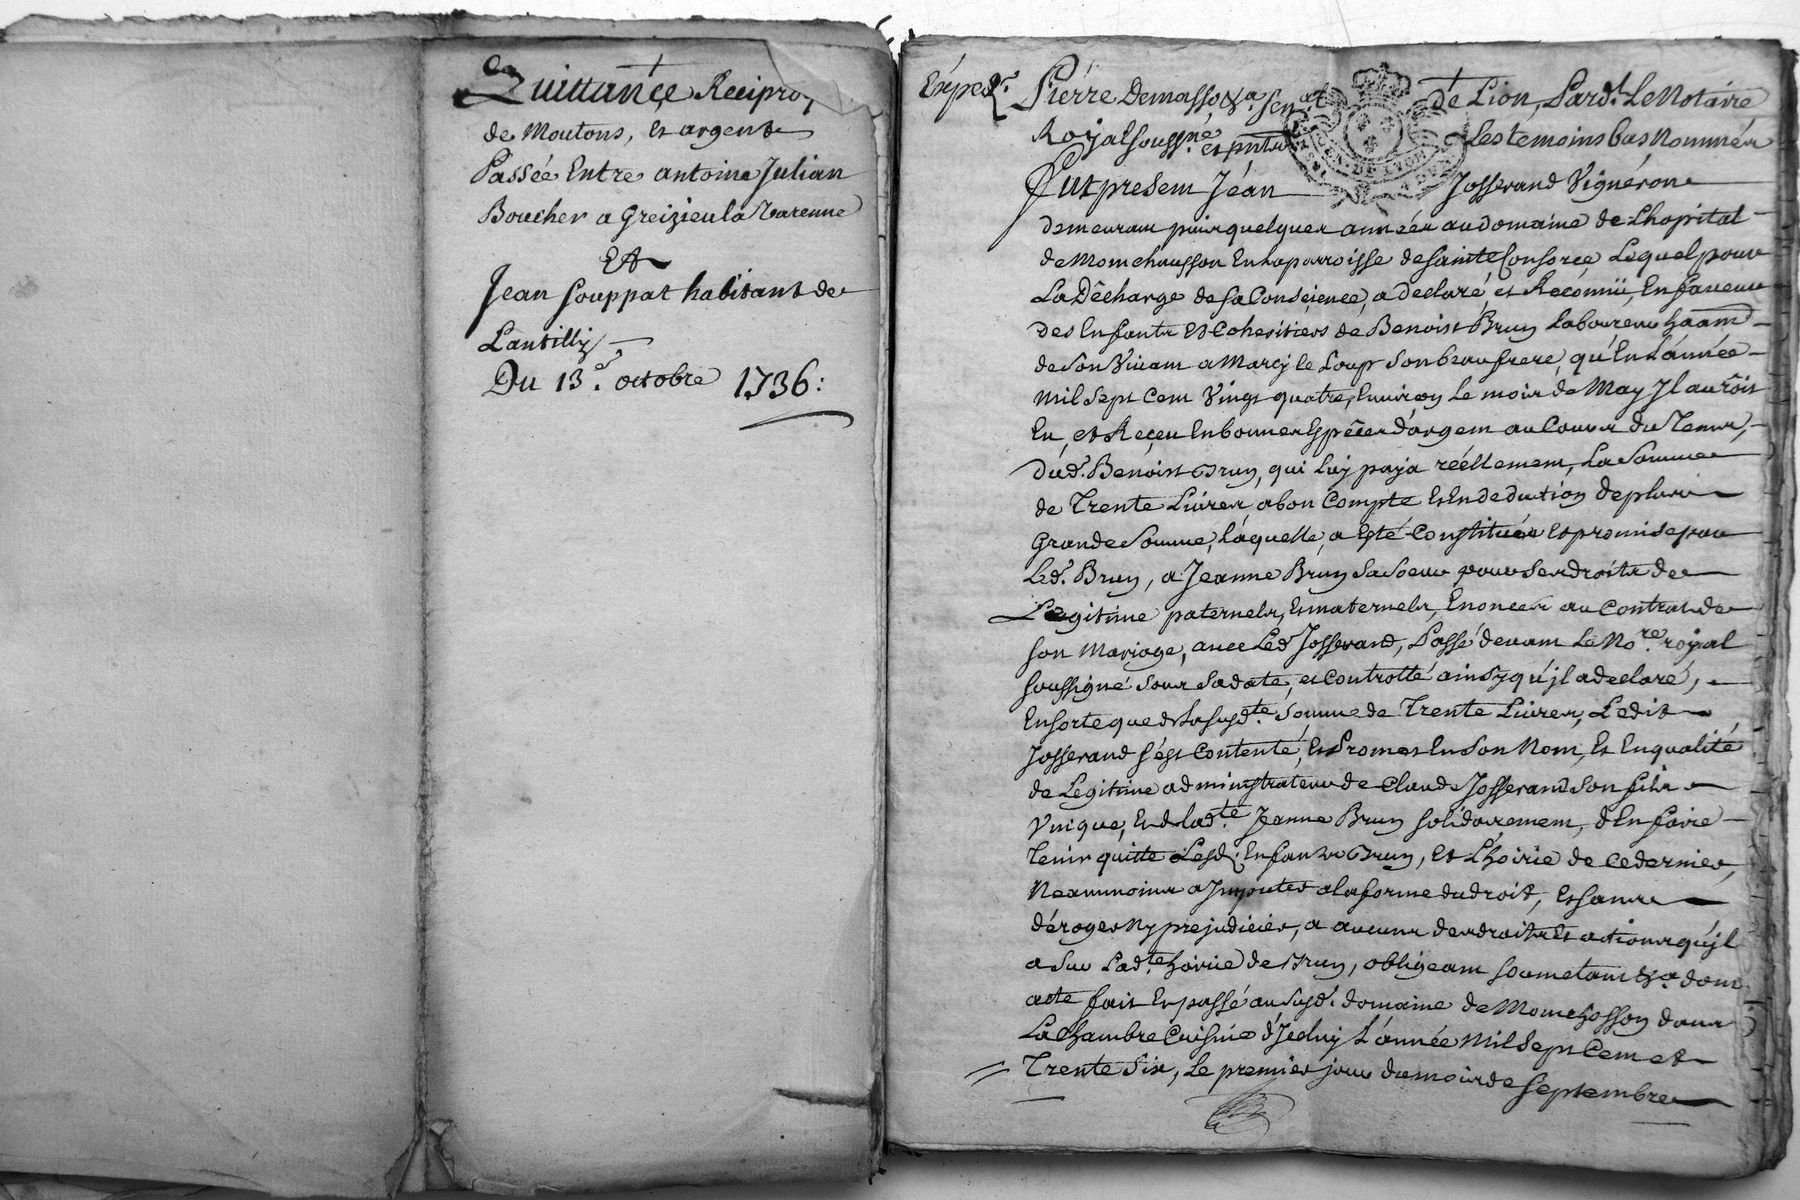 Quittance Recipro
de Moutons, Et argent
Passée Entre antoine Julian
Boucher a Greizieu la Varenne
Et
Jean Souppat habitant de
Lantilly
Du 13e. octobre 1736:
Exped.
Pierre Demasso &a. Sen.al de Lion, Pard.t Le Notaire
Royal soussné. et pnts Les temoins bas Nommés
GEN. DE LYON
Fut present Jean Josserand Vigneron
demeurant puis quelques années au domaine de Lhopital
de Montchausson En La parroisse de Sainte Consorce, Lequel pour
La Décharge de sa Conscience, a declaré, et Reconnü, En faveur
des Enfants Et Cohesitiers de Benoist Brun Laboureur
de Son Vivant a Marcy le Loup Son beau frere, qu'En L'année
Mil Sept Cent Vingt quatre, Environ Le mois de May Jl auroit
Eu, et Reçeu En bonnes Espèces d'argent au Cours du Tems,
dud. Benoist Brun, qui Luy paya réellement, La Somme
de Trente Livres, a bon Compte Et En deduction de plus
Grande Somme, Laquelle, a Esté Constituée Et promise par
Led. Brun, a Jeanne Brun Sa Soeur pour Ses droits de
Legitime paternels, Et maternels, Enoncés au Contrat de
Son Mariage, avec Led. Josserand, Passé devant Le No.re royal
Soussigné Sous Sa date, et Controllé ainsy qu'jl a declaré,
En sorte que d La susd.te Somme de Trente Livres, Ledit
Josserand S'est Contenté, Et Promet En Son Nom, Et En qualité
de Legitime administrateur de Claude Josserand Son fils
Vnique, Et d Lad.te Jeanne Brun Solidairement, d'En faire
Tenir quitte Lesd. Enfants Brun, Et L'hoirie de ce dernier,
Neanmoins a Jmputer a La forme du droit, Et Sans
déroger Ny prejudicier, a aucuns des droits Et actions qu'jl
a Sur Lad.te hoirie de Brun, obligeant soumetant &a. dont
acte fait Et passé au Susd. domaine de Montchosson dans
La Chambre Cuisine d'Jceluy L'année Mil Sept Cent et
Trente Six, Le premier jour du mois de Septembre